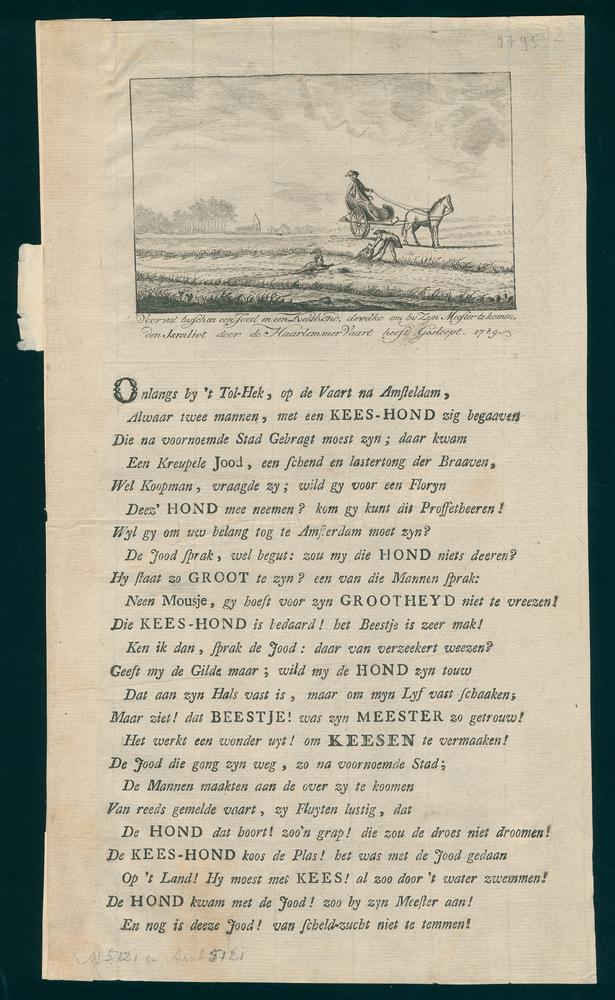 9795 12
Voorval tusschen een Jood en een Keeshond, dewelke om by Zyn Meester te komen,
den Israliet door de Haarlemmer Vaart heeft Gesleept. 1789
Onlangs by 't Tol-Hek, op de Vaart na Amſteldam,
Alwaar twee mannen, met een KEES-HOND zig begaaven
Die na voornoemde Stad Gebragt moest zyn; daar kwam
Een Kreupele Jood, een ſchend en lastertong der Braaven,
Wel Koopman, vraagde zy; wild gy voor een Floryn
Deez' HOND mee neemen? kom gy kunt dit Proffetheeren!
Wyl gy om uw belang tog te Amſterdam moet zyn?
De Jood ſprak, wel begut: zou my die HOND niets deeren?
Hy ſtaat zo GROOT te zyn? een van die Mannen ſprak:
Neen Mousje, gy hoeft voor zyn GROOTHEYD niet te vreezen!
Die KEES-HOND is bedaard! het Beestje is zeer mak!
Ken ik dan, ſprak de Jood: daar van verzeekert weezen?
Geeft my de Gilde maar; wild my de HOND zyn touw
Dat aan zyn Hals vast is, maar om myn Lyf vast ſchaaken;
Maar ziet! dat BEESTJE! was zyn MEESTER zo getrouw!
Het werkt een wonder uyt! om KEESEN te vermaaken!
De Jood die gong zyn weg, zo na voornoemde Stad;
De Mannen maakten aan de over zy te koomen
Van reeds gemelde vaart, zy Fluyten lustig, dat
De HOND dat hoort! zoo'n grap! die zou de droes niet droomen!
De KEES-HOND koos de Plas! het was met de Jood gedaan
Op 't Land! Hy moest met KEES! al zoo door 't water zwemmen!
De HOND kwam met de Jood! zoo by zyn Meeſter aan!
En nog is deeze Jood! van ſcheld-zucht niet te temmen!